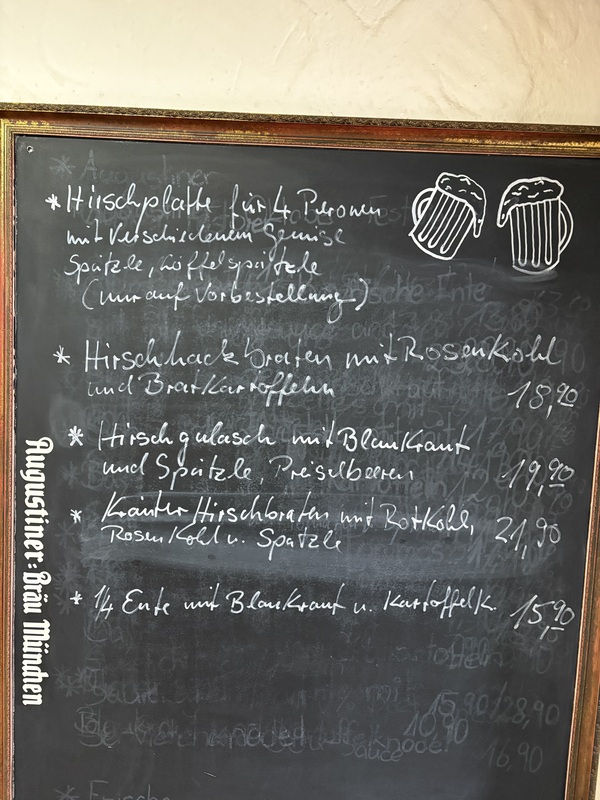 * Hirschplatte für 4 Personen
mit verschiedenem Gemüse
Spätzle, Löffelspätzle
(nur auf Vorbestellung!)
* Hirschhackbraten mit Rosenkohl
und Bratkartoffeln 18,90
* Hirschgulasch mit Blaukraut
und Spätzle, Preiselbeeren 19,90
* Kräuter Hirschbraten mit Rotkohl, 21,90
Rosenkohl u. Spätzle
* 1/4 Ente mit Blaukraut u. Kartoffelk. 15,90
15,90/28,90
10,90
16,90
Augustiner
Ente
Sauce
Frische
Augustiner-Bräu München